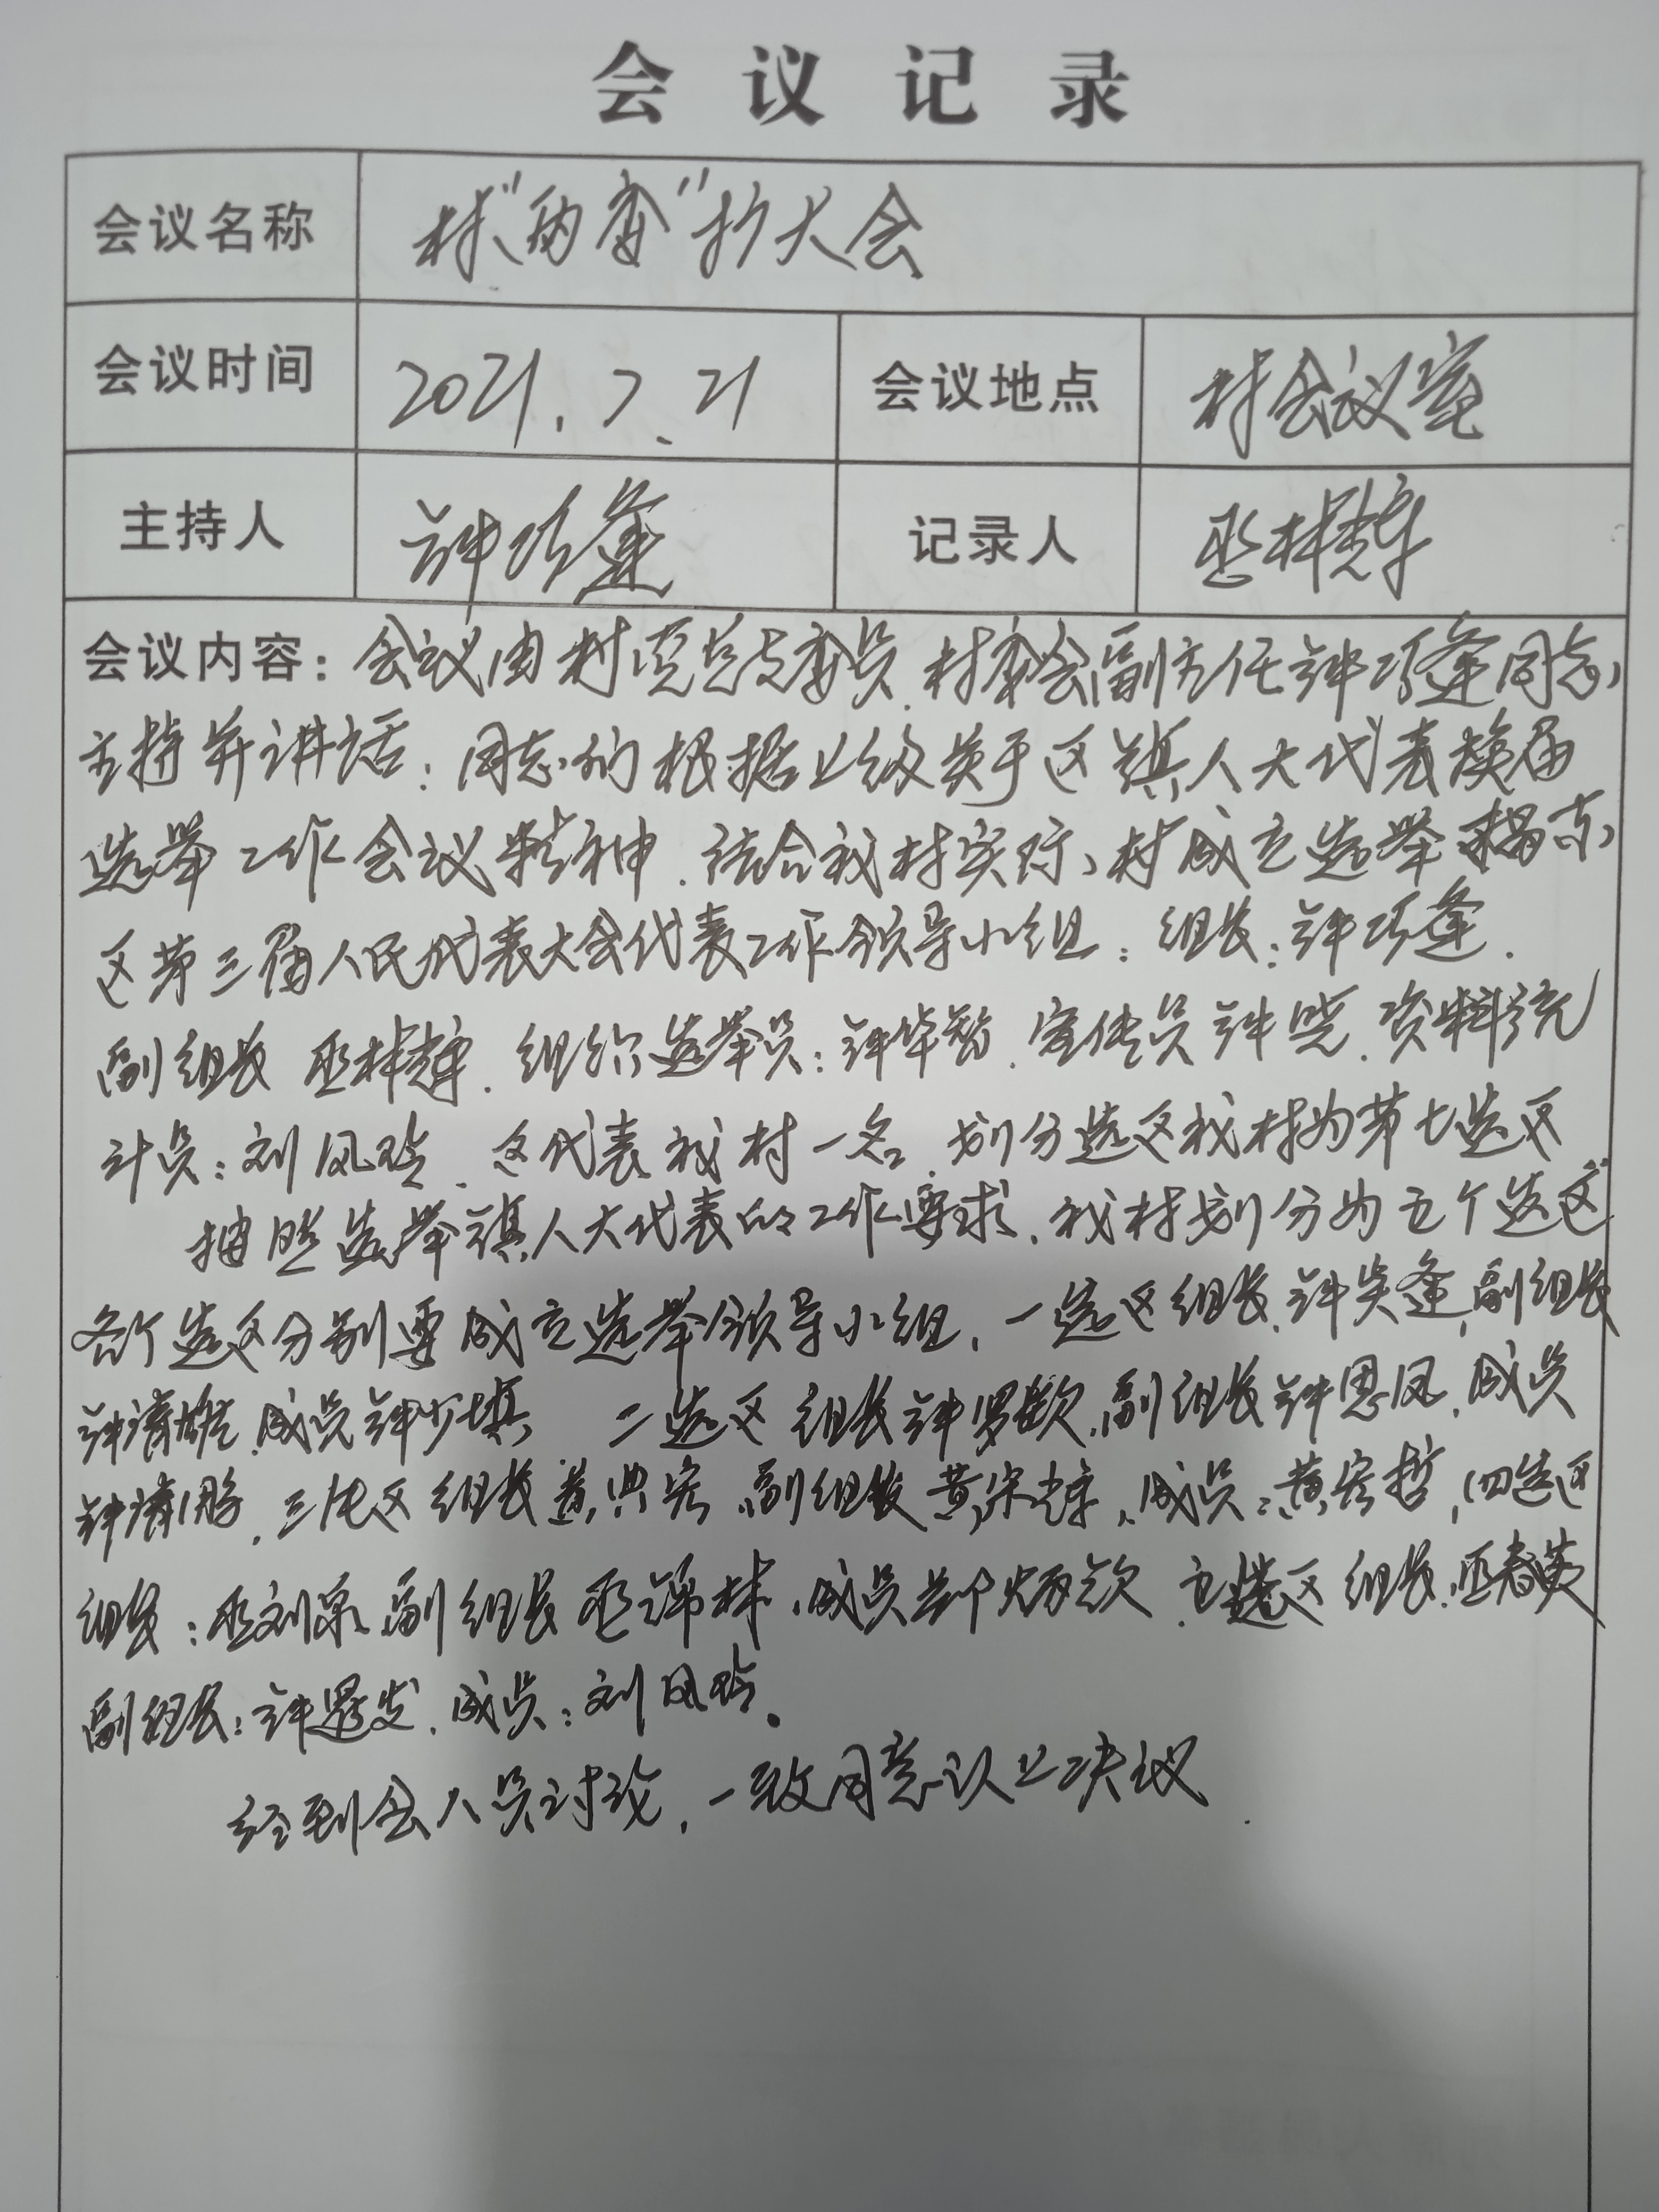 会议记录
会议名称 村“两委”扩大会
会议时间 2021.7.21 会议地点 村会议室
主持人 钟巧逢 记录人 巫林辉
会议内容：会议由村党总支委员、村委会副主任钟巧逢同志
主持并讲话：同志们根据上级关于区镇人大代表换届
选举工作会议精神、结合我村实际、村成立选举揭东
区第三届人民代表大会代表工作领导小组：组长：钟巧逢.
副组长 巫林辉.组织选举员：钟华智.宣传员钟晓.资料统
计员：刘凤玲.区代表我村一名.划分选区我村为第七选区
按照选举镇人大代表的工作要求.我村划分为五个选区
各个选区分别要成立选举领导小组,一选区组长.钟奕逢,副组长
钟潜雄.成员钟少填 二选区组长钟罗歆.副组长钟恩凤.成员
钟潜鹏.三选区组长黄典宏 副组长黄宋辉.成员：黄宏哲,四选区
组长：巫刘泉 副组长巫锦林.成员 炳钦.五选区组长.巫春英
副组长：钟 发.成员：刘凤玲。
经到会人员讨论,一致同意以上决议.